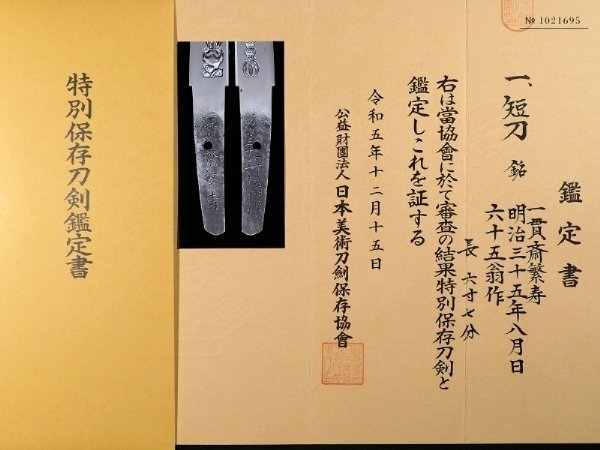 特別保存刀剣鑑定書
№ 1021695
鑑定書
一、短刀 銘 一貫斎繁寿
明治三十五年八月日
六十五翁作
長 六寸七分
右は當協會に於て審査の結果特別保存刀剣と
鑑定しこれを証する
令和五年十二月十五日
公益財團法人日本美術刀劍保存協會